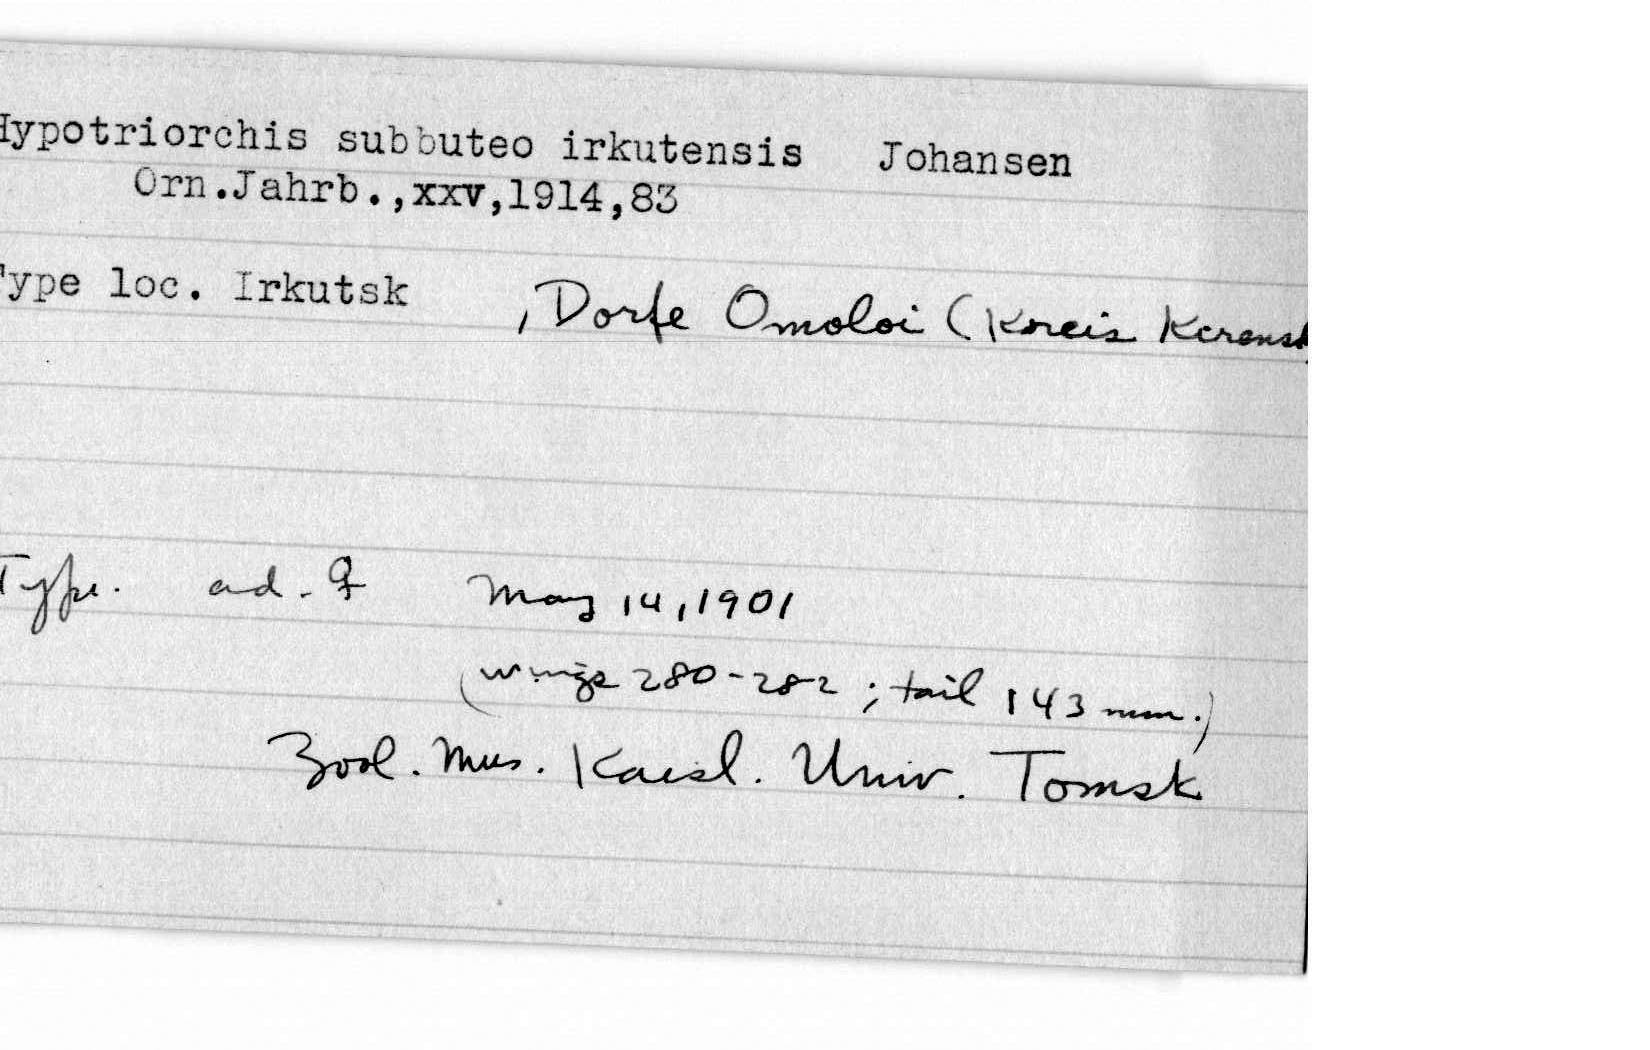 Hypotriorchis subbuteo irkutensis Johansen
Orn.Jahrb.,xxv,1914,83
Type loc. Irkutsk , Dorfe Omoloi (Kreis Kerensk
Type. ad. ♀ May 14, 1901
(wings 280-282 ; tail 143 mm.)
Zool. Mus. Kaisl. Univ. Tomsk